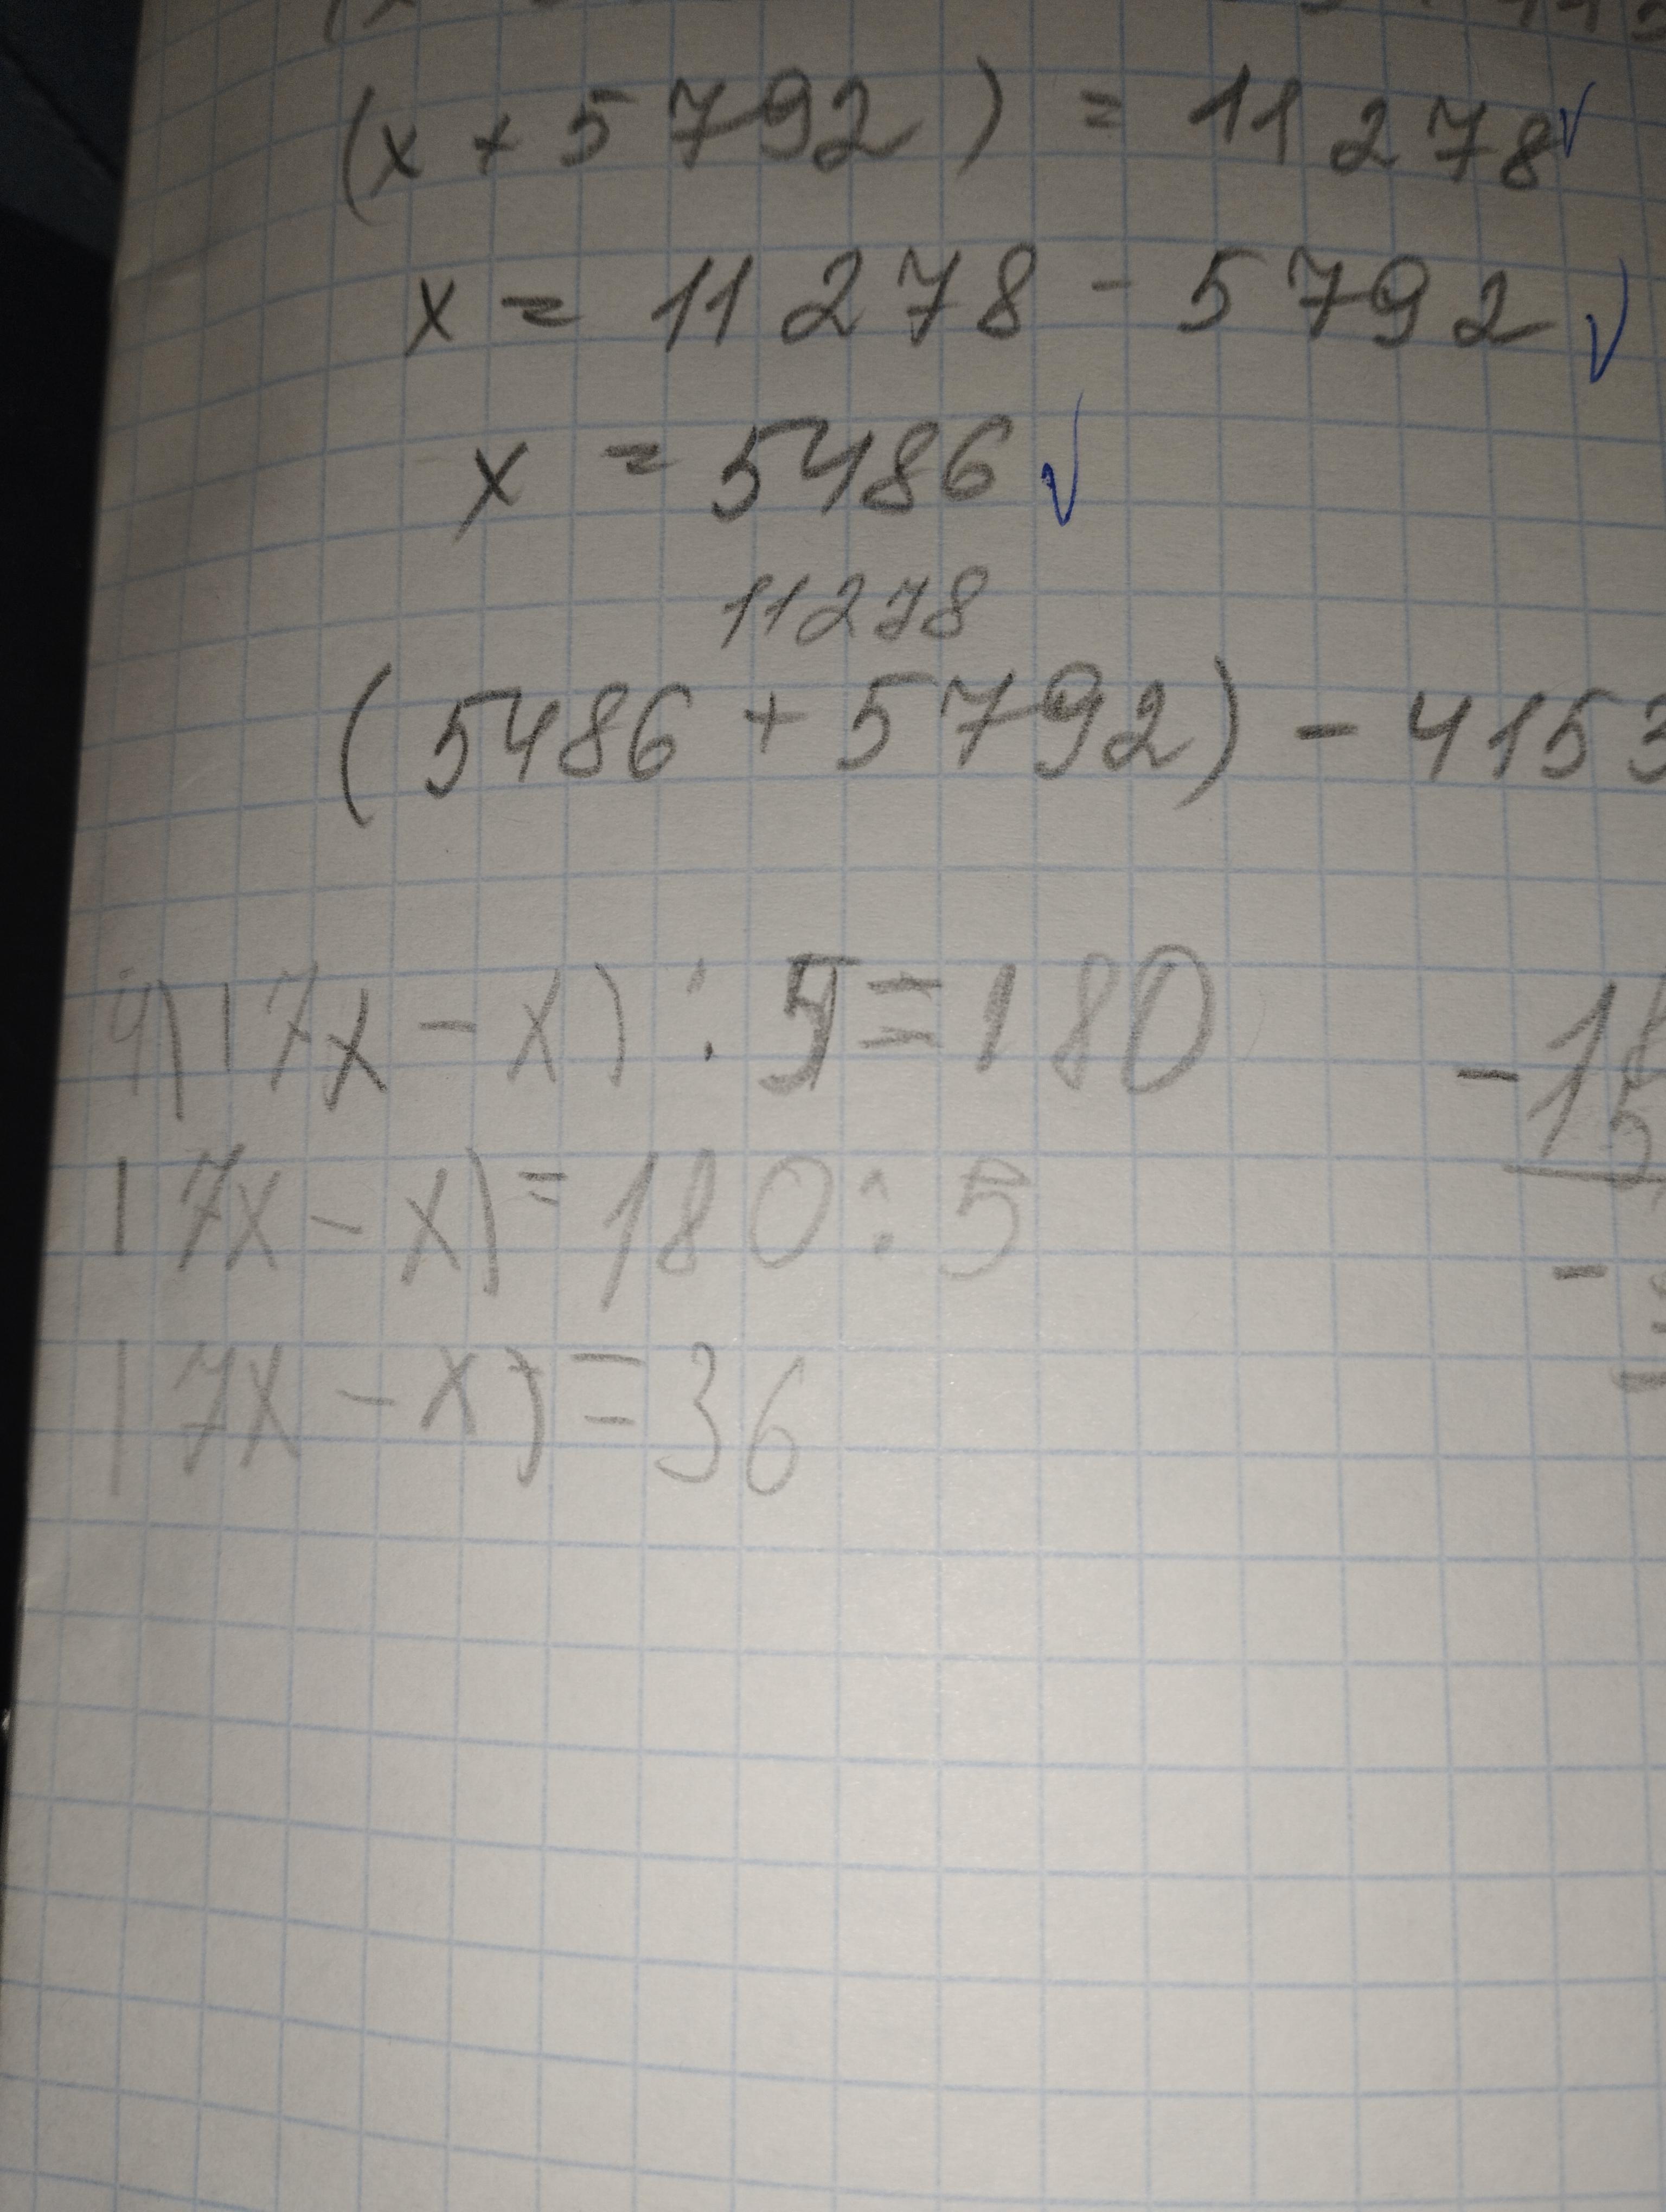 (x + 5792) = 11278
x = 11278 - 5792
x = 5486
11278
(5486 + 5792) - 4153
4) (7x - x) : 5 = 180
(7x - x) = 180 : 5
(7x - x) = 36